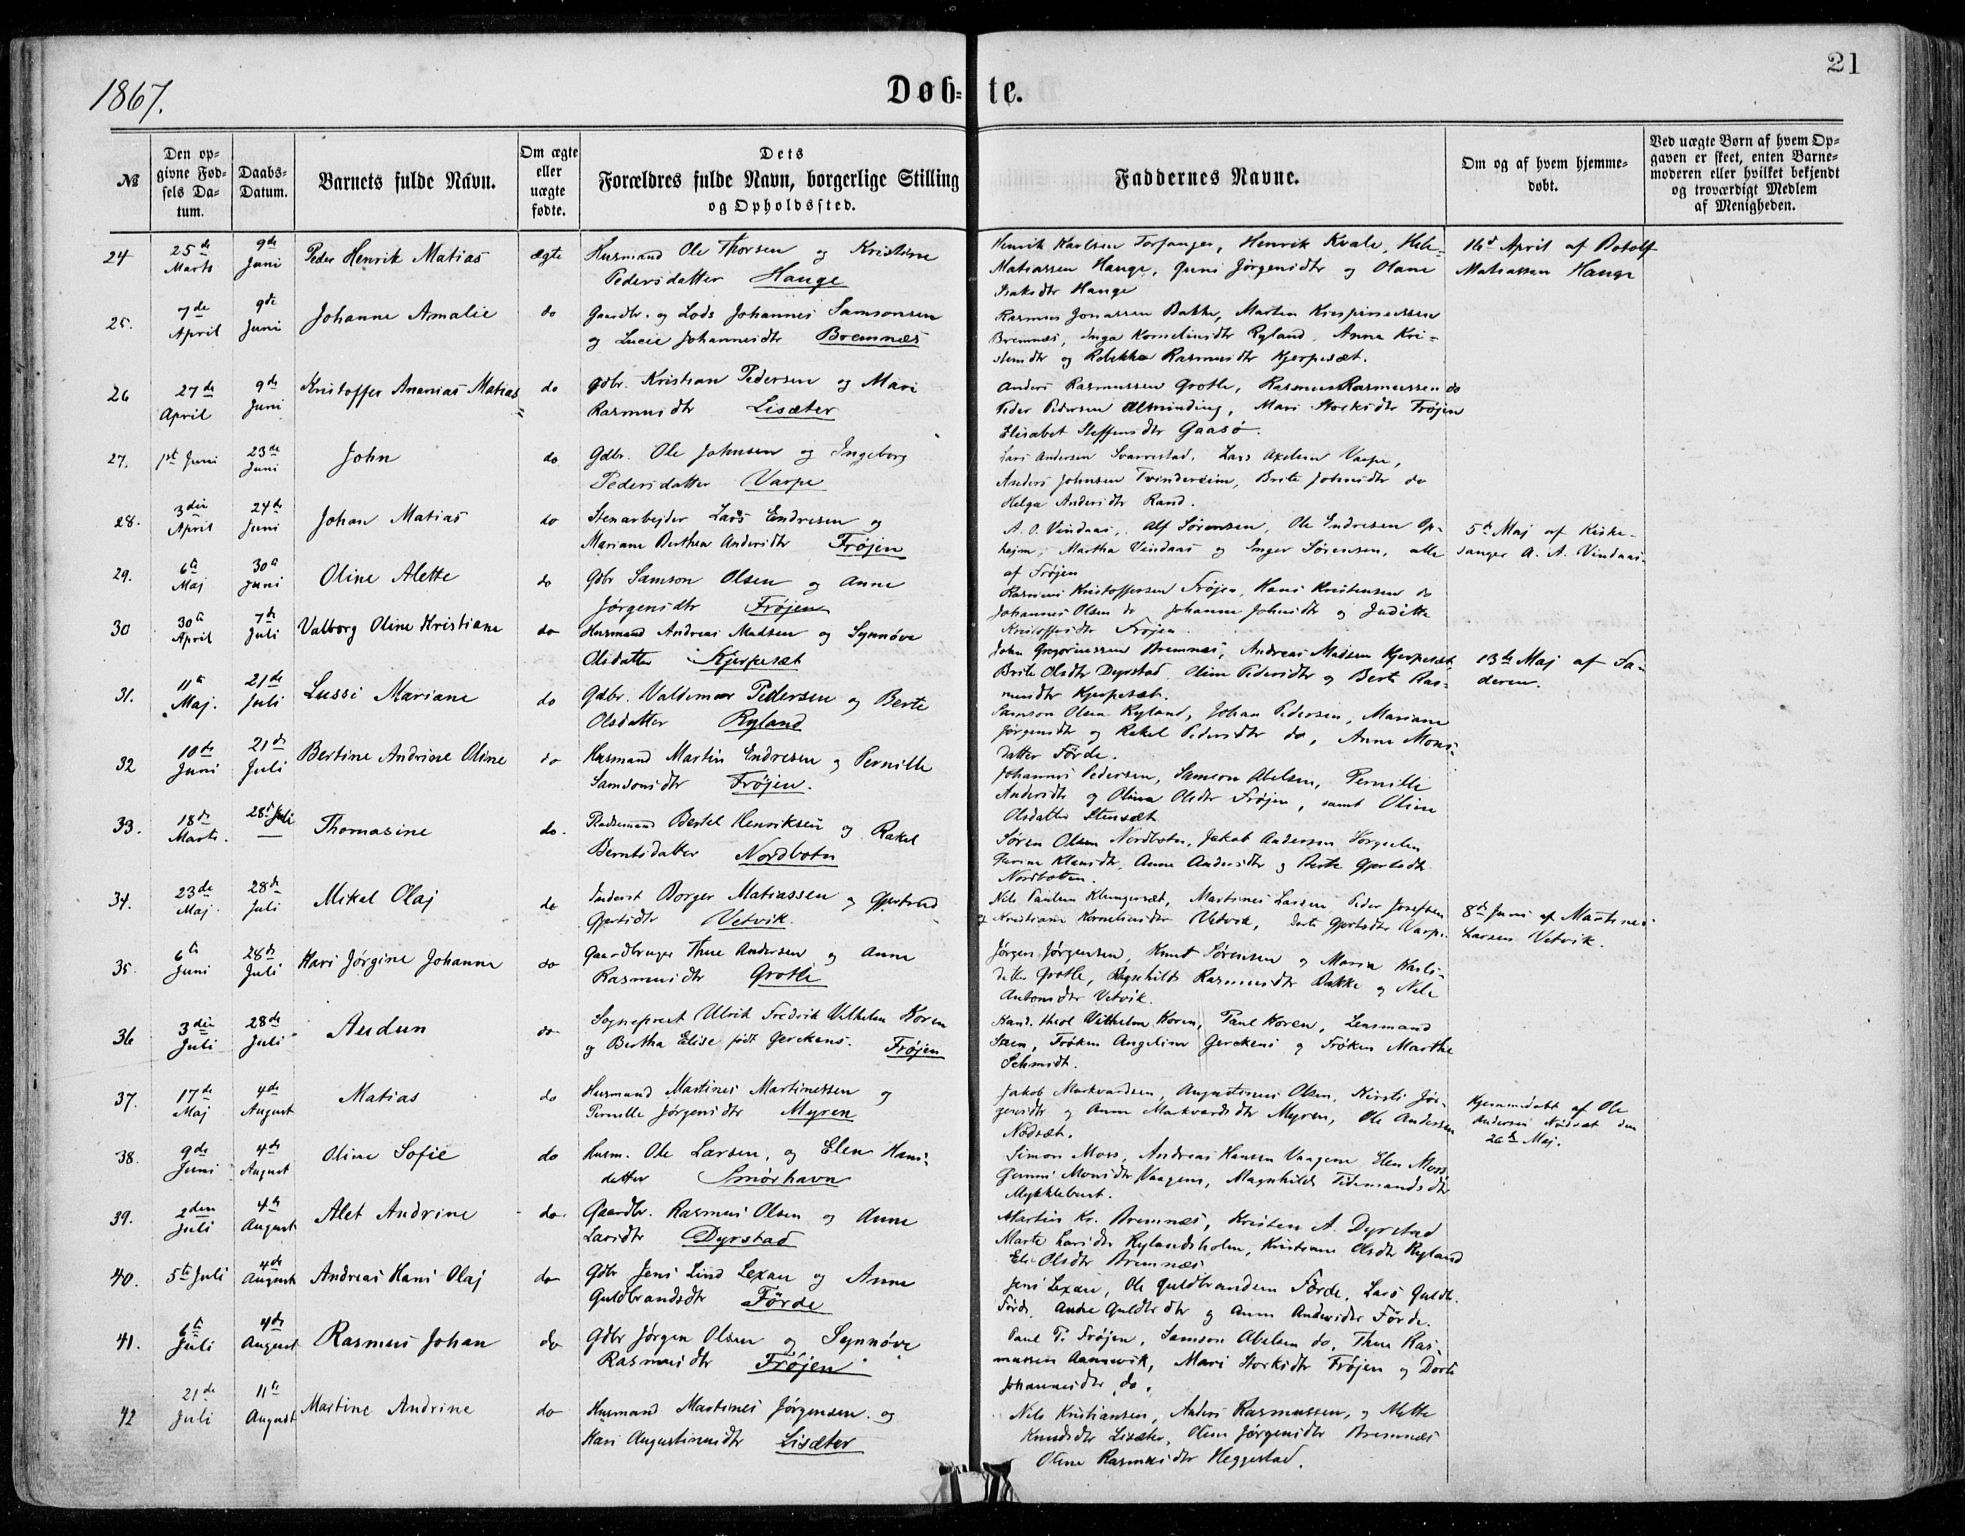 21
1867.
Døb= te.
№
Den op=
givne Fød=
sels Da=
tum.
Daabs=
Datum.
Barnets fulde Navn.
Om ægte
eller
uægte
fødte.
Dets
Forældres fulde Navn, borgerlige Stilling
og Opholdssted.
Faddernes Navne.
Om og af hvem hjemme=
døbt.
Ved uægte Børn af hvem Op=
gaven er skeet, enten Barne=
moderen eller hvilket bekjendt
og troværdigt Medlem
af Menigheden.
24 25de Marts 9de Juni Peder Henrik Matias ægte
Husmand Ole Thorsen og Kristine
Pedersdatter Hauge
Henrik Karlsen Torfanger, Henrik Kvale,
Matiassen Hauge, Guni Jørgensdtr og Olane
Isaksdtr Hauge
16d April af Botolf
Matiassen Hauge
25. 7de April 9de Juni Johanne Amalie do
Gaardbr. og Lods Johannes Samsonsen
og Lucie Johannesdtr Bremnæs
Rasmus Jonassen Bakke, Martin Krispinussen
Bremnæs, Inga Korneliusdtr Ryland, Anne Kri-
stensdtr og Rebekka Rasmusdtr Kjerpesæt.
26 27de April 9de Juni Kristoffer Ananias Matias do
Gdbr. Kristian Pedersen og Mari
Rasmusdtr Lisæter
Anders Rasmussen Grotle, Rasmus Rasmussen do
Peder Pedersen Alminding, Mari Storksdtr Frøjen
Elisabet Steffensdtr Gaasø.
27. 1ste Juni 23de Juni John do
Gdbr. Ole Johnsen og Ingeborg
Pedersdatter Varpe
Lars Andersen Svarrestad, Lars Axelsen Varpe,
Anders Johnsen Tvindereim, Brite Johnsdtr do
Helga Andersdtr Rand.
28. 3die April 24de Juni Johan Matias do
Stenarbejder Lars Endresen og
Mariane Berthea Andersdtr Frøjen
A. O. Vindaas, Alf Sørensen, Ole Endresen Op-
hejm, Martha Vindaas og Inger Sørensen, alle
af Frøjen
5te Maj af Kirke-
sanger A. A. Vindaas.
29. 6te Maj 30te Juni Oline Alette do
Gdbr Samson Olsen og Anne
Jørgensdtr Frøjen
Rasmus Kristoffersen Frøjen, Hans Kristensen do
Johannes Olsen do, Johanne Johnsdtr og Juditte
Kristoffersdtr Frøjen.
30 30te April 7de Juli Valborg Oline Kristiane do
Husmand Andreas Madsen og Synnøve
Olsdatter Kjerpesæt
John Gregoriussen Bremnæs, Andreas Madsen Kjerpesæt
Brite Olsdtr Dyrstad, Oline Pedersdtr og Berte Ras-
musdtr Kjerpesæt.
13de Maj af Fa-
deren.
31. 11te Maj. 21de Juli Lussi Mariane do
Gdbr. Valdemar Pedersen og Berte
Olsdatter Ryland
Samson Olsen Ryland, Johan Pedersen, Mariane
Jørgensdtr og Rakel Pedersdtr do, Anne Mons-
datter Førde.
32 10de Juni 21de Juli Bertine Andrine Oline do
Husmand Martin Endresen og Pernille
Samsonsdtr Frøjen.
Johannes Pedersen, Samson Abelsen, Pernille
Andersdtr og Olina Olsdtr Frøjen, samt Oline
Olsdatter Stensæt
33. 18de Marts. 28de Juli Thomasine do.
Pladsemand Bertel Henriksen og Rakel
Berntsdatter Nordbotn
Søren Olsen Nordbotn, Jakob Andersen
Klausdtr, Anne Andersdtr og Berte Gjertsdtr
Nordbotten.
34. 23de Maj. 28de Juli Mikal Olaj do
Inderst Borger Matiassen og Gjertrud
Gjertsdtr Vetvik.
Nils Paulsen Klungersæt, Martines Larsen Peder Josefsen
og Kristiane Korneliusdtr Vetvik, Dorte Gjertsdtr Varpe.
8de Juni af Martines
Larsen Vetvik.
35. 6te Juni 28de Juli Hari Jørgine Johanne do
Gaardbruger Thue Andersen og Anne
Rasmusdtr Grotle
Jørgen Jørgensen, Knut Sørensen og Maria Karls-
datter Grotle, Ragnhilde Rasmusdtr Bakke og Nele
Antonsdtr Vetvik.
36 3die Juli 28de Juli Audun do
Sognepræst Ulrik Fredrik Vilhelm Koren
og Bertha Elise født Gerckens. Frøjen
Kand. theol Vilhelm Koren, Paul Koren, Lensmand
Steen, Frøken Angeline Gerckens og Frøken Marthe
Schmidt.
37. 17de Maj 4de August Matias do
Husmand Martines Martinessen og
Pernille Jørgensdtr Myren
Jakob Markvardsen, Augustinus Olsen, Kirsti Jør-
gensdtr og Anne Markvardsdtr Myren, Ole Andersen
Nødsæt.
Hjemmedøbt af Ole
Andersen Nødsæt den
26de Maj.
38. 9de Juni 4de August Oline Sofie do
Husm. Ole Larsen, og Elen Hans-
datter Smørhavn
Simon Moss, Andreas Hansen Vaagene, Elen Moss,
Monsdtr Vaagene, Magnhilde Tidemandsdtr
Myklebust.
39. 2den Juli 4de August Alet Andrine do
Gaardbr. Rasmus Olsen og Anne
Larsdtr Dyrstad
Martin Kr. Bremnæs, Kristen A. Dyrstad
Marte Larsdtr Rylandsholm, Kristiane Olsdtr Ryland
Eli Olsdtr Bremnæs
40. 5te Juli 4de August Andreas Hans Olaj do
Gdbr Jens Lind Lexau og Anne
Guldbrandsdtr Førde
Jens Lexau, Ole Guldbrandsen Førde, Lars Guldb.
Førde, Andre Guldbrdtr og Anne Andersdtr Førde.
41. 6te Juli 4de August Rasmus Johan do
Gdbr Jørgen Olsen og Synnøve
Rasmusdtr Frøjen
Paul P. Frøjen, Samson Abelsen do, Thue Ras-
mussen Aannevik, Mari Storksdtr Frøjen og Dorte
Johannesdtr do.
42 21de Juli 11te August Martine Andrine do
Husmand Martines Jørgensen og
Hari Augustinusdtr Lisæter
Nils Kristiansen, Anders Rasmussen, og Mette
Knudsdtr Lisæter, Oline Jørgensdtr Bremnæs
Oline Rasmusdtr Heggestad.